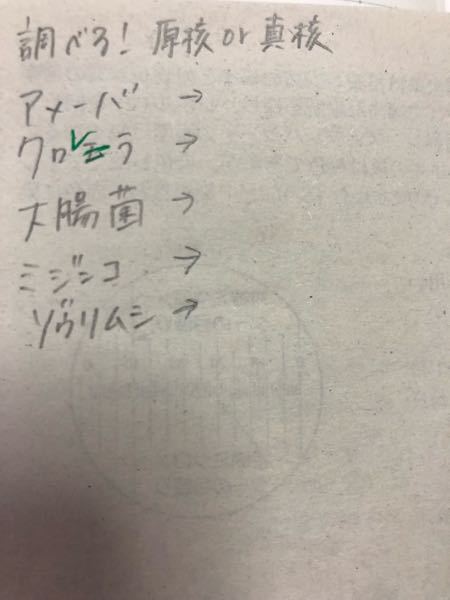 調べろ！原核or真核
アメーバ →
クロレラ →
大腸菌 →
ミジンコ →
ゾウリムシ →